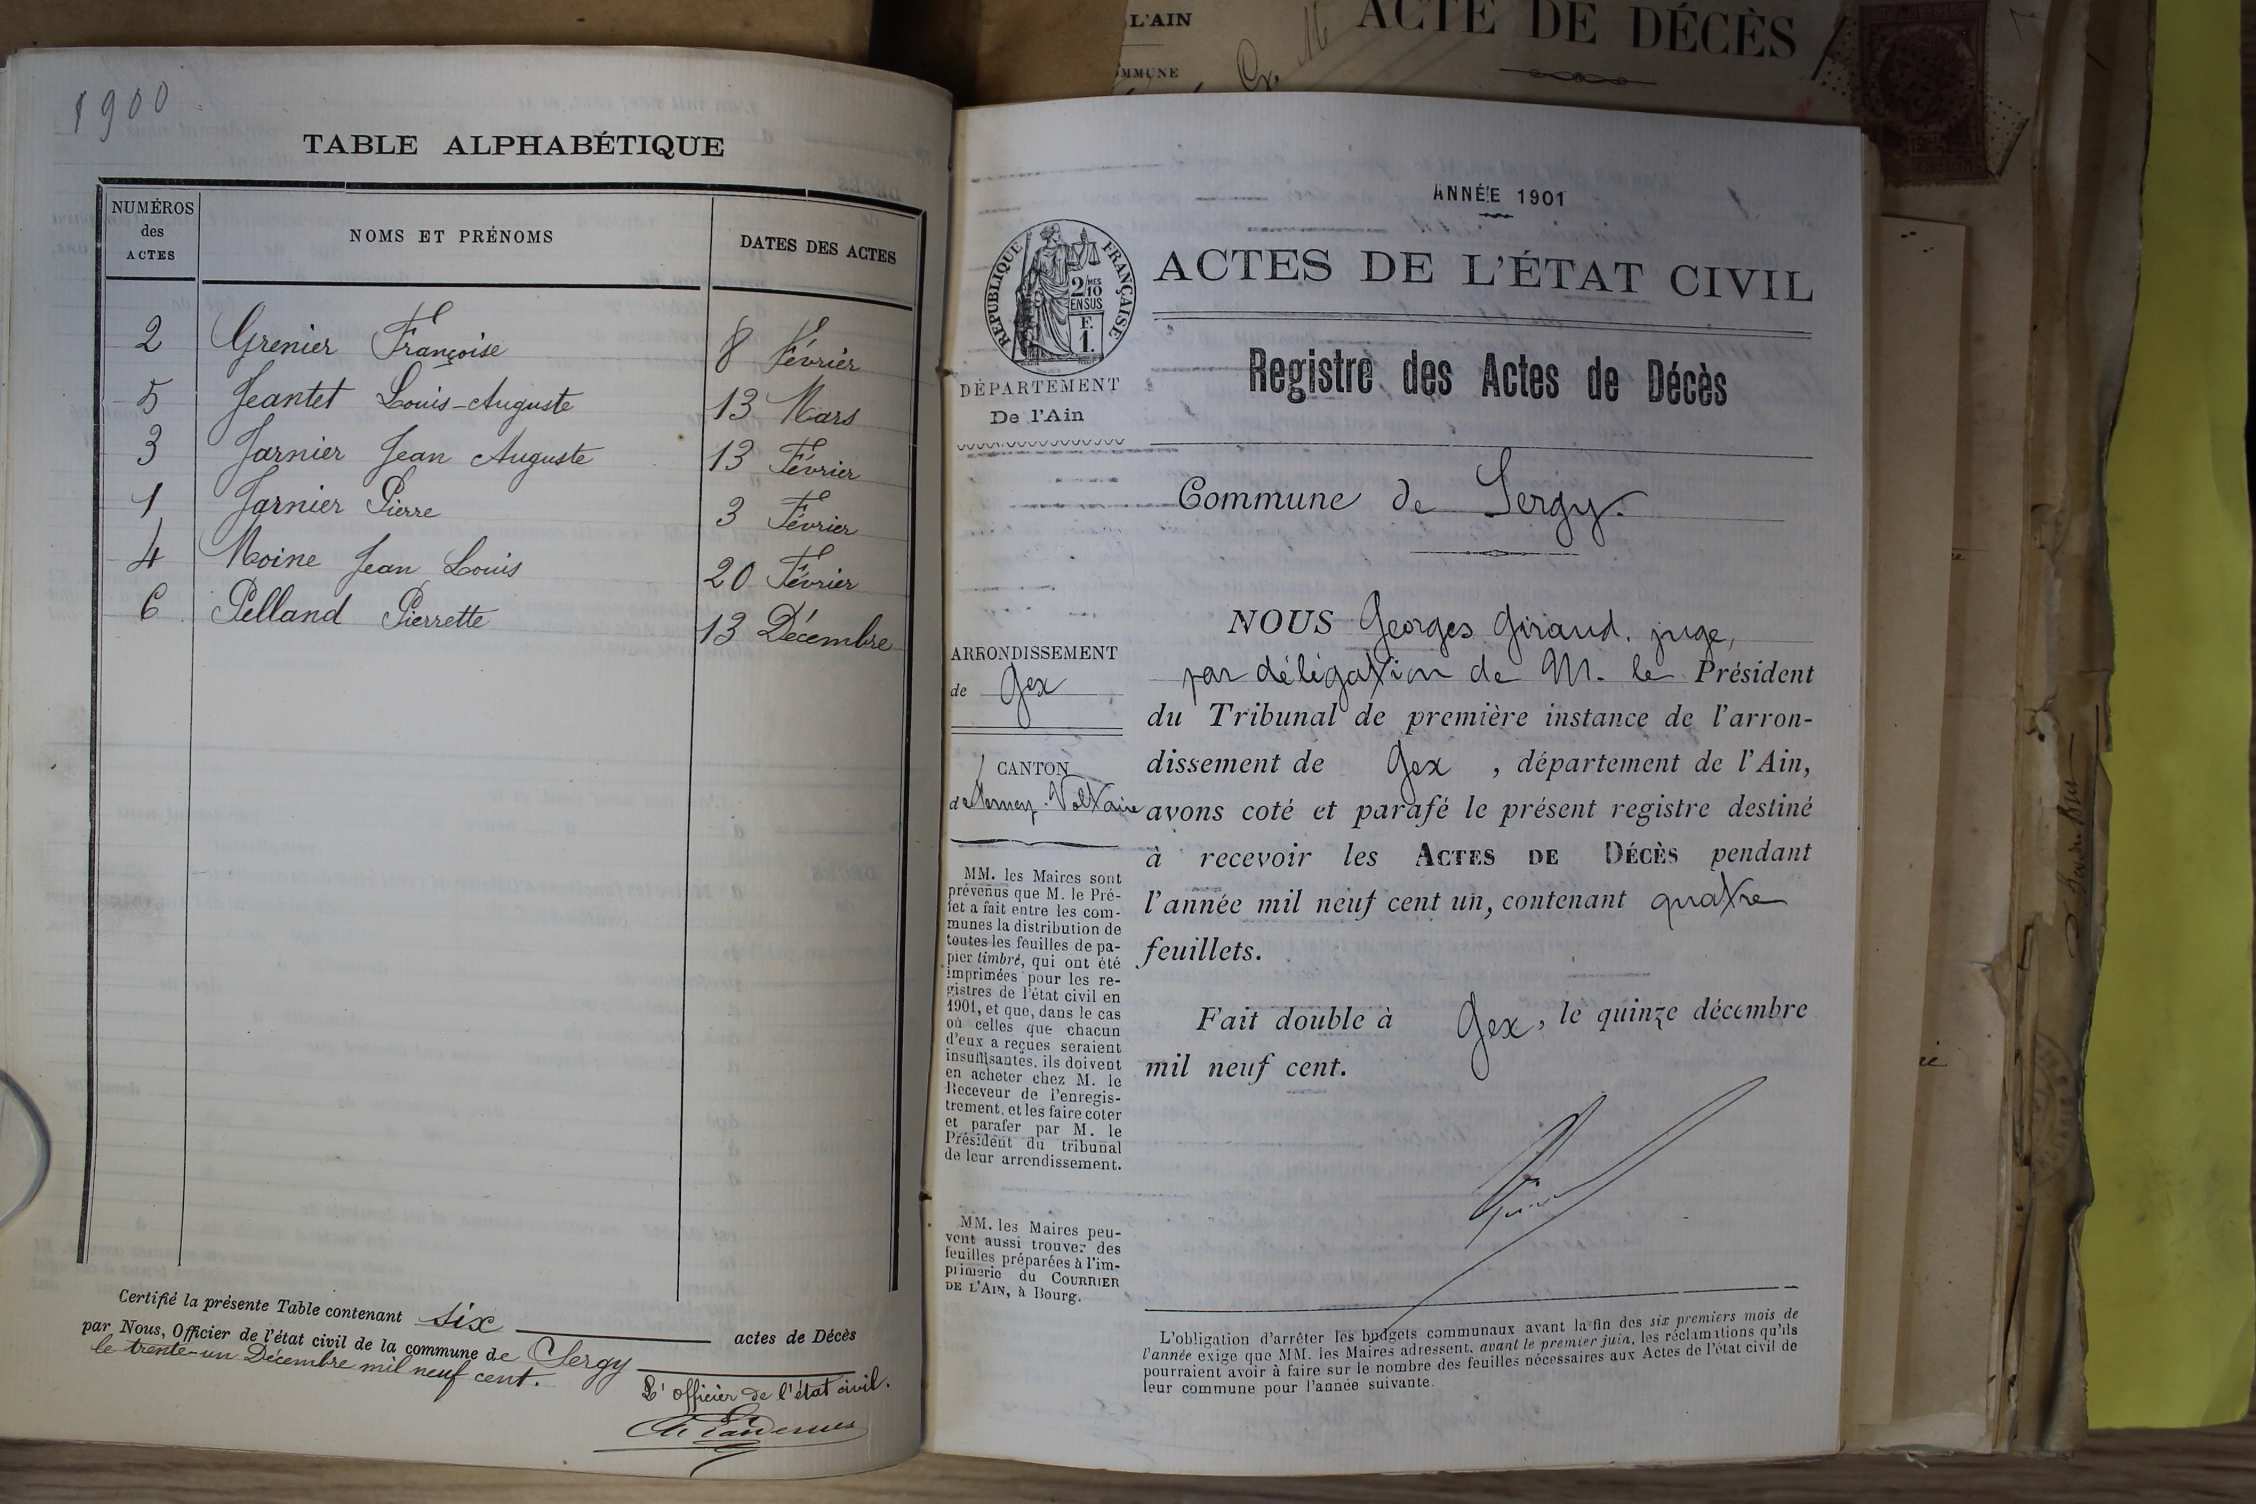 1900
TABLE ALPHABÉTIQUE
NUMÉROS
des
ACTES
NOMS ET PRÉNOMS
DATES DES ACTES
2 Grenier Françoise 8 Février
5 Jeantet Louis-Auguste 13 Mars
3 Jarnier Jean Auguste 13 Février
1 Jarnier Pierre 3 Février
4 Moine Jean Louis 20 Février
6 Pelland Pierrette 13 Décembre
Certifié la présente Table contenant six actes de Décès
par Nous, Officier de l'état civil de la commune de Sergy
le trente-un Décembre mil neuf cent.
L'officier de l'état civil.
L'AIN
ACTE DE DÉCÈS
ANNÉE 1901
RÉPUBLIQUE FRANÇAISE
2/10 MES
EN SUS
F.
1.
ACTES DE L'ÉTAT CIVIL
Registre des Actes de Décès
DÉPARTEMENT
De l'Ain
Commune de Sergy.
ARRONDISSEMENT
de Gex
CANTON
de Ferney-Voltaire
MM. les Maires sont
prévenus que M. le Pré-
fet a fait entre les com-
munes la distribution de
toutes les feuilles de pa-
pier timbré, qui ont été
imprimées pour les re-
gistres de l'état civil en
1901, et que, dans le cas
où celles que chacun
d'eux a reçues seraient
insuffisantes, ils doivent
en acheter chez M. le
Receveur de l'enregis-
trement, et les faire coter
et parafer par M. le
Président du tribunal
de leur arrondissement.
MM. les Maires peu-
vent aussi trouver des
feuilles préparées à l'im-
primerie du COURRIER
DE L'AIN, à Bourg.
NOUS Georges Giraud, juge,
par délégation de M. le Président
du Tribunal de première instance de l'arron-
dissement de Gex, département de l'Ain,
avons coté et parafé le présent registre destiné
à recevoir les ACTES DE DÉCÈS pendant
l'année mil neuf cent un, contenant quatre
feuillets.
Fait double à Gex, le quinze décembre
mil neuf cent.
L'obligation d'arrêter les budgets communaux avant la fin des six premiers mois de
l'année exige que MM. les Maires adressent, avant le premier juin, les réclamations qu'ils
pourraient avoir à faire sur le nombre des feuilles nécessaires aux Actes de l'état civil de
leur commune pour l'année suivante.